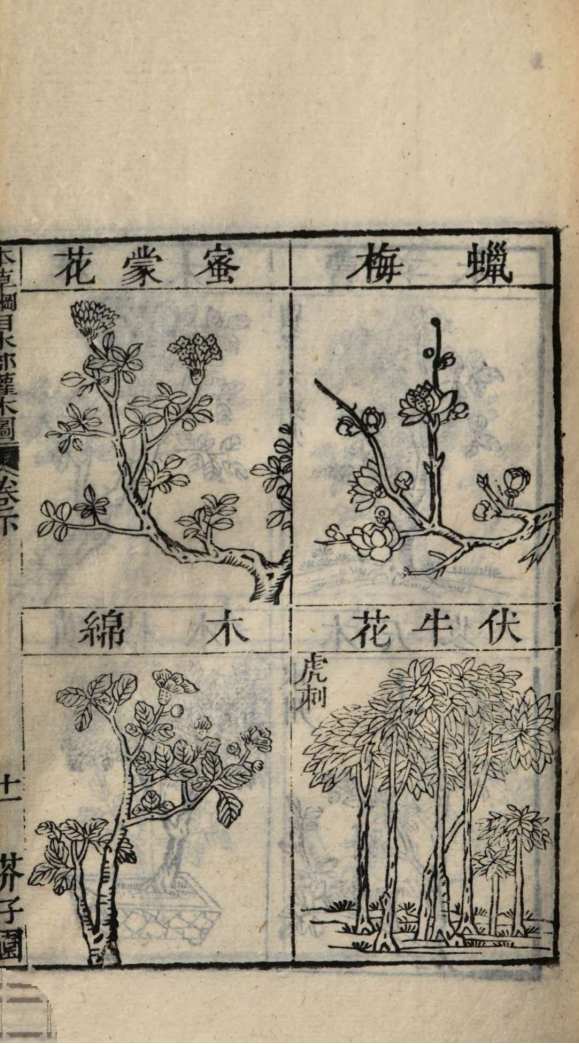 蠟梅
蜜蒙花
伏牛花
虎刺
木綿
本草綱目木部灌木圖
卷之下
十一
芥子園